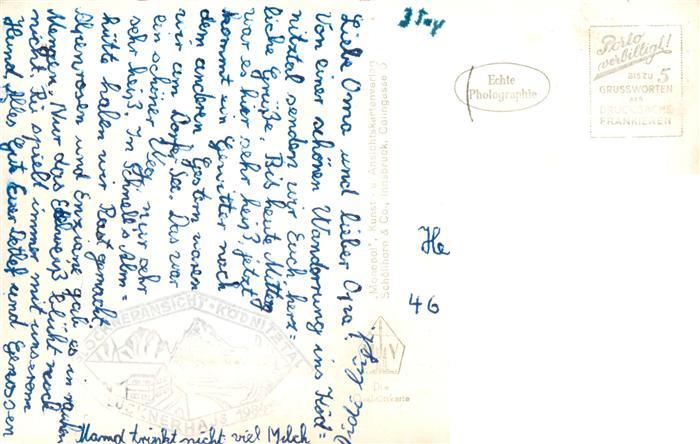 Liebe Oma und lieber Opa!
Von einer schönen Wanderung ins Ködnitztal senden wir Euch herz=
liche Grüße. Bis heute Mittag
war es hier sehr heiß, jetzt
kommt ein Gewitter nach
dem anderen. Gestern waren
wir am Dorfer See. Das war
ein schöner Weg, nur sehr
sehr heiß. In Schnell's Alm=
hütte haben wir Rast gemacht.
Alpenrosen und Enziane gab es in rauhen
Mengen. Nur das Edelweiß blüht noch
nicht. Pü spielt immer mit unserem
Hund. Alles Gute Euer Detlef und Genossen
Mama trinkt nicht viel Milch
3 Tay
Echte
Photographie
Porto
verbilligt!
BIS ZU 5
GRUSSWORTEN
ALS
DRUCKSACHE
FRANKIEREN
"Monopol", Kunst- u. Ansichtskartenverlag
Schöllhorn & Co., Innsbruck, Colingasse 3
He
46
Die
Qualitätskarte
GLOCKNERANSICHT · KÖDNITZTAL